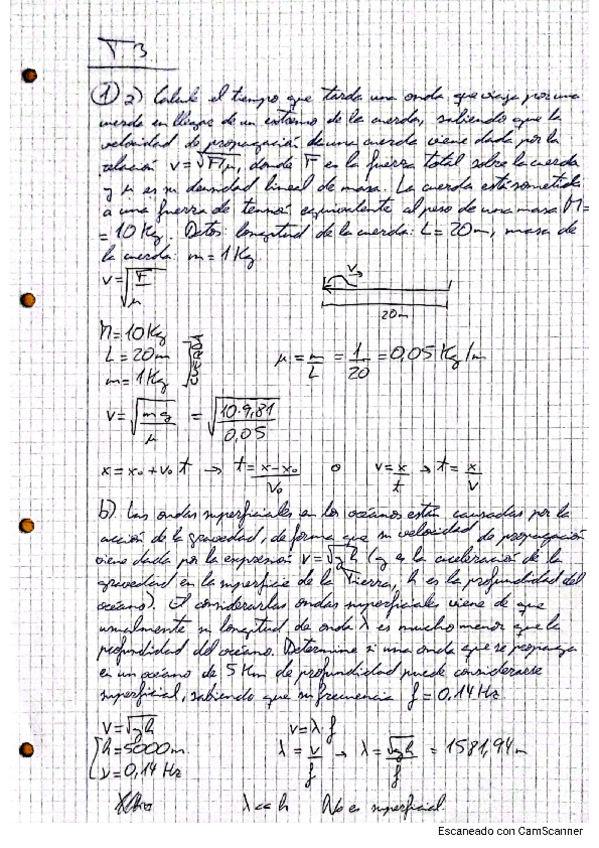 T3
① a) Calcule el tiempo que tarda una onda que viaja por una
cuerda en llegar de un extremo de la cuerda, sabiendo que la
velocidad de propagación de una cuerda viene dada por la
relación v=√F/μ, donde F es la fuerza total sobre la cuerda
y μ es su densidad lineal de masa. La cuerda está sometida
a una fuerza de tensión equivalente al peso de una masa M=
= 10 Kg. Datos: longitud de la cuerda: L = 20m, masa de
la cuerda: m = 1 Kg.
v = √F/μ
v
20m
M = 10 Kg
L = 20m
m = 1 Kg
μ = m/L = 1/20 = 0,05 Kg/m
v = √mg/μ = √10·9,81/0,05
x = x₀ + v₀ t → t = x-x₀/v₀ o v = x/t → t = x/v
b) Las ondas superficiales en los océanos están causadas por la
acción de la gravedad, de forma que su velocidad de propagación
viene dada por la expresión v = √gh (g es la aceleración de la
gravedad en la superficie de la Tierra, h es la profundidad del
océano). El considerarlas ondas superficiales viene de que
usualmente su longitud de onda λ es mucho menor que la
profundidad del océano. Determine si una onda que se propaga
en un océano de 5 Km de profundidad puede considerarse
superficial, sabiendo que su frecuencia f = 0,14 Hz
v = √gh v = λ f
h = 5000m. λ = v/f → λ = √gh/f = 1581,94m
ν = 0,14 Hz
λ << h No es superficial.
Escaneado con CamScanner